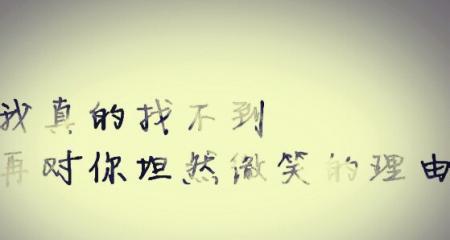 我真的找不到
再对你坦然微笑的理由